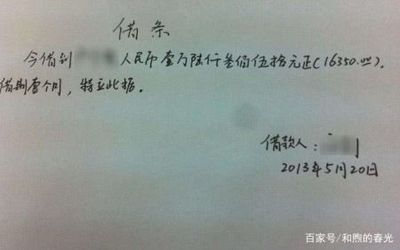 借条
今借到 人民币壹万陆仟叁佰伍拾元正(16350.00).
借期壹个月,特立此据。
借款人:
2013年5月20日
百家号/和煦的春光